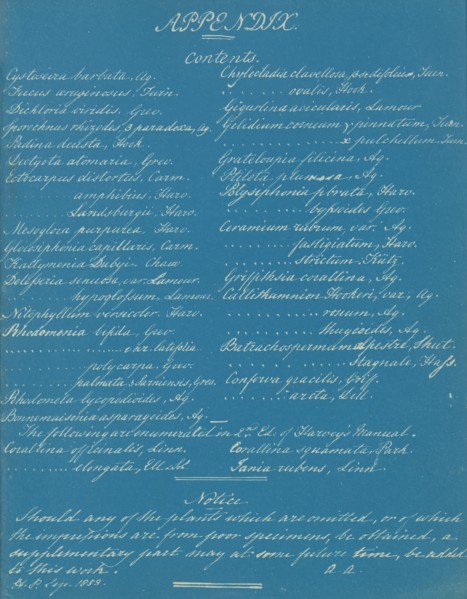 APPENDIX.
Contents.
Cystosiera barbata, Ag.
Fucus
Dichloria viridis, Grev.
Sporochnus rhizodes, β paradoxa, Ag.
Padina deusta, Hook
Dictyota atomaria, Grev.
Ectocarpus distortus, Carm.
........ amphibius, Harv.
........ Landsburgii, Harv.
Mesogloia purpurea Harv.
Gloiosiphonia capillaris, Carm.
Kallymenia Dubyi Chauv.
Delesseria sinuosa, var. Lamour.
........ hypoglossum, Lamour.
Nitophyllum versicolor Harv.
Rhodomenia bifida, Grev.
........ var. latifolia
........ polycarpa, Grev.
........ palmata β Sarniensis, Grev.
Rhodomela lycopodioides, Ag.
Bonnemaisonia asparagoides, Ag.
Chylocladia clavellosa, Turn.
........ ovalis, Hook.
Gigartina acicularis, Lamour
Gelidium corneum γ pinnatum, Turn.
........ x pulchellum Turn.
Grateloupia filicina, Ag.
Ptilota plumosa, Ag.
Polysiphonia fibrata, Harv.
........ byssoides Grev.
Ceramium rubrum, var. Ag.
........ fastigiatum, Harv.
........ strictum, Kütz.
Griffithsia corallina, Ag.
Callithamnion Hookeri, var, Ag.
........ roseum, Ag.
........ Ag.
Batrachospermum alpestre, Shut.
........ Stagnale, Hass.
Conferva gracilis, Griff.
........ arcta, Dill.
The following are enumerated in 2nd Ed. of Harvey's Manual.
Corallina officinalis, Linn.
........ elongata, Ell. & Sol
Corallina squamata, Park.
Jania rubens, Linn
Notice
Should any of the plants which are omitted, or of which
the impressions are from poor specimens, be obtained, a
supplementary part may at some future time, be added
to this work.
A. A.
H. P. Sep. 1853.